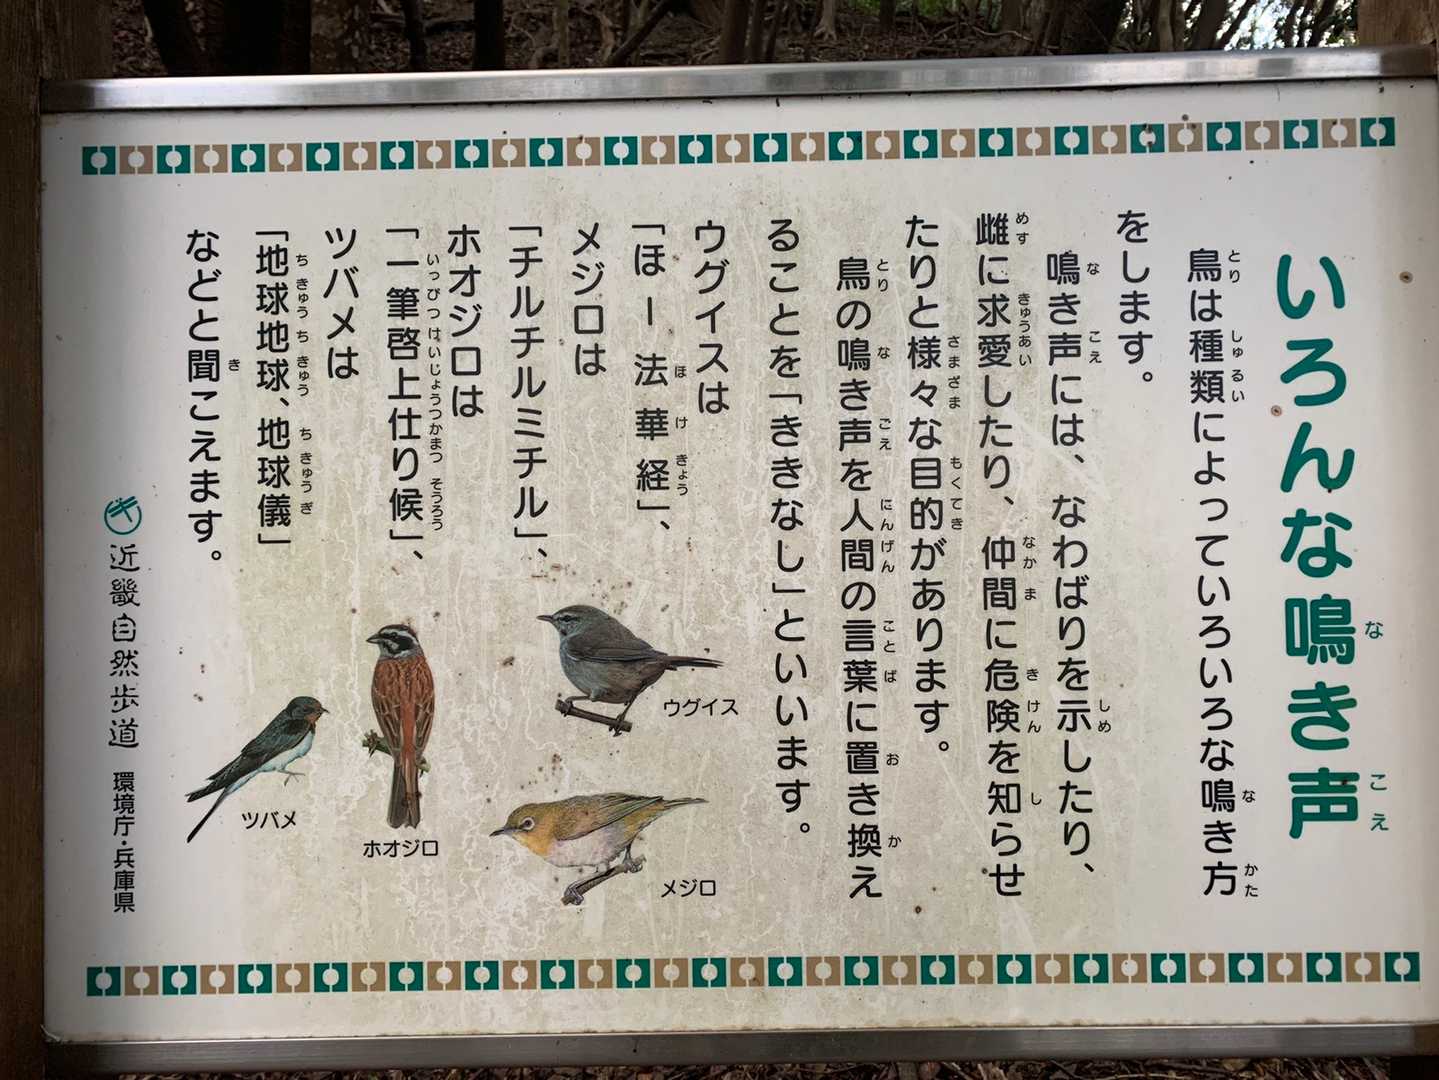 いろんな鳴き声
鳥は種類によっていろいろな鳴き方
をします。
鳴き声には、なわばりを示したり、
雌に求愛したり、仲間に危険を知らせ
たりと様々な目的があります。
鳥の鳴き声を人間の言葉に置き換え
ることを「ききなし」といいます。
ウグイスは
「ほー法華経」、
メジロは
「チルチルミチル」、
ホオジロは
「一筆啓上仕り候」、
ツバメは
「地球地球、地球儀」
などと聞こえます。
ウグイス
メジロ
ホオジロ
ツバメ
近畿自然歩道 環境庁・兵庫県